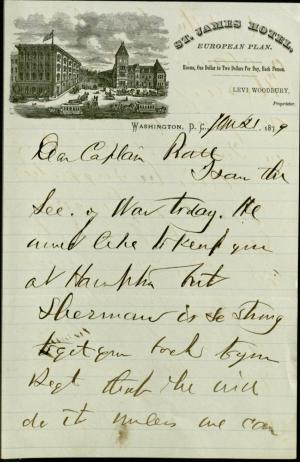 ST. JAMES HOTEL,
EUROPEAN PLAN.
Rooms, One Dollar to Two Dollars Per Day, Each Person.
LEVI WOODBURY,
Proprietor.
WASHINGTON, D. C., Jan 21 1879
Dear Captain Pratt
I saw the
Sec. of War today. He
would like to keep you
at Hampton but
Sherman is so strong
to get you back to your
Regt that he will
do it unless we can